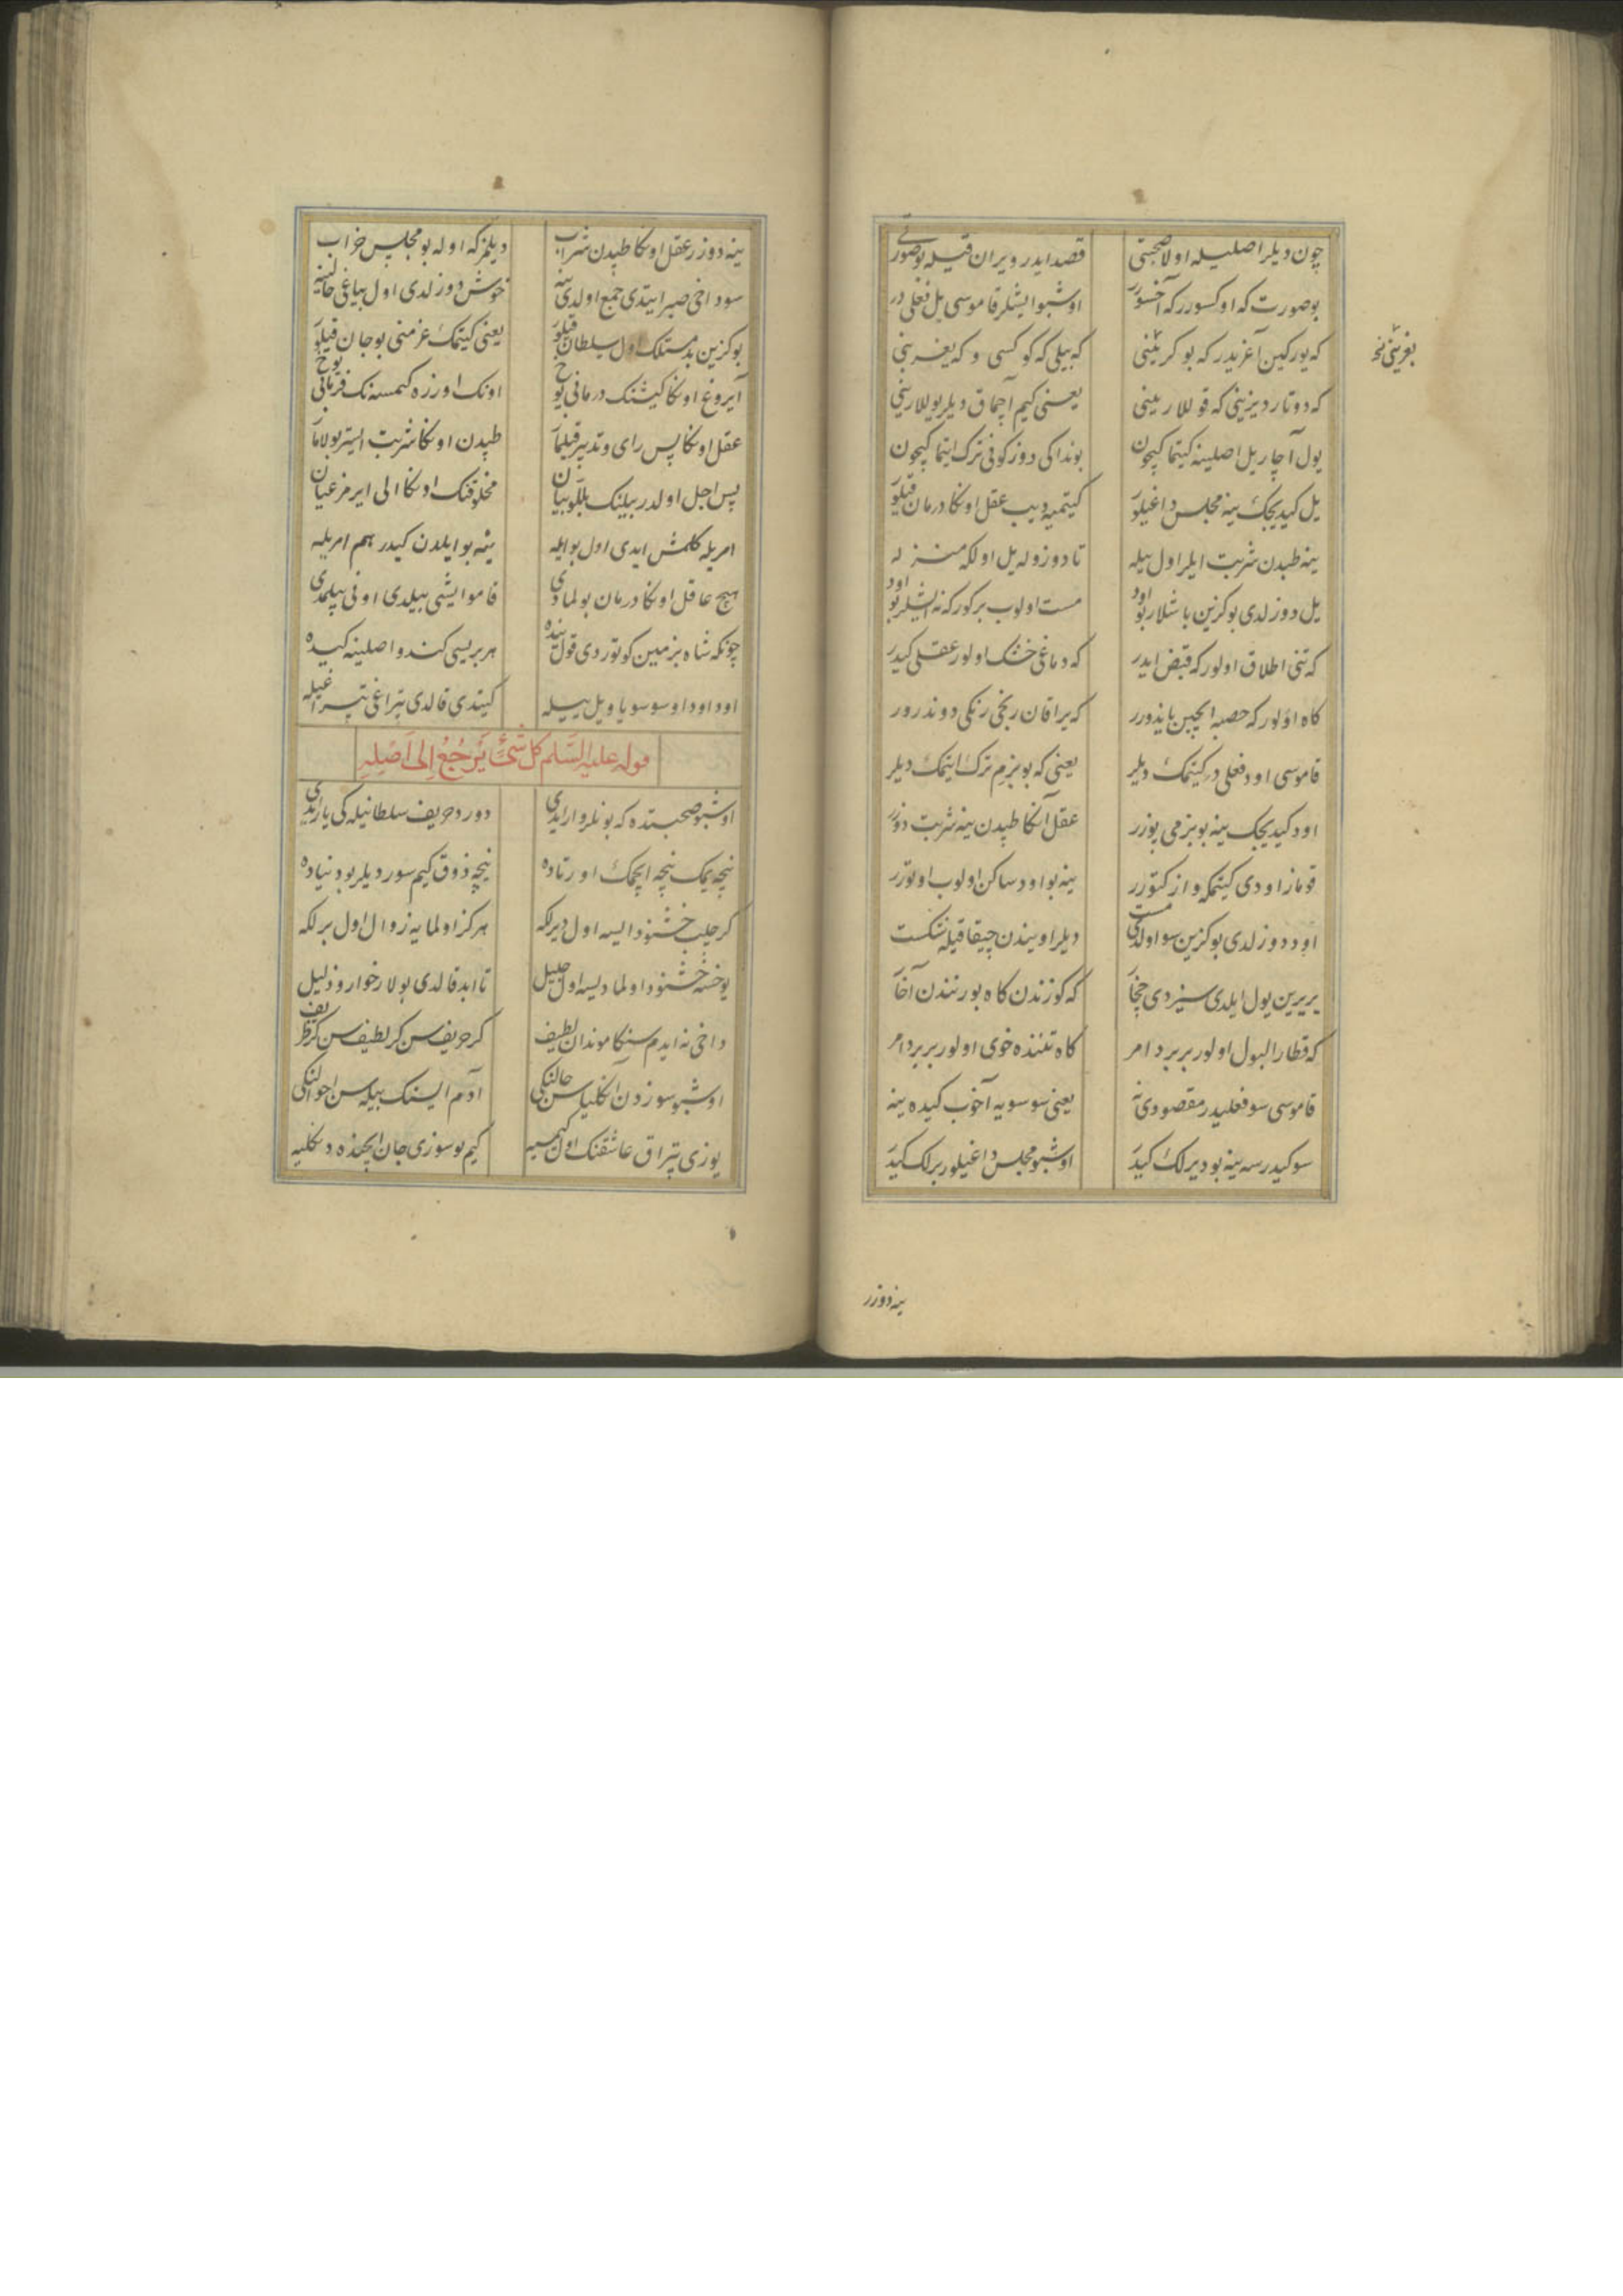 چون دیلر اصلیله اولا صحبتی قصد ایدر ویران قیله بو صورتی
بو صورت که اوکسورر که آخسورر اوشبو ایشلر قاموسی یل فعلی در
که یورکین آغریدر که بوکرینی که بیلی که کوکسی و که یغرینی
بغرینی نخ
که دوتار دیزینی که قوللارینی یعنی کیم آچماق دیلر یوللارینی
یول آچار یل اصلینه کیتما کیچون بونداکی دوزکونی ترک ایتما کیچون
یل کیدیجک ینه مجلس داغیلور کیتمیه دیب عقل اوکا درمان قیلور
ینه طبدن شربت ایلر اول بیله تا دوزوله یل اولکه منزله
یل دوزلدی بو کزین باشلار بو اود مست اولوب بر کور که نه ایشلر بو اود
که تنی اطلاق اولور که قبض ایدر که دماغی خشک اولور عقلی کیدر
کاه اولور که حصبه ایچین یاندورر که یراقان رنجی رنکی دوندرور
قاموسی اود فعلی در کیتمک دیلر یعنی که بو بزم ترک ایتمک دیلر
اود کیدیجک ینه بو بزمی بوزر عقل آنکا طبدن ینه شربت دوزر
قوماز اودی کیتمکه واز کتورر ینه بو اود ساکن اولوب اوتورر
اود دوزلدی بو کزین سو اولدی مست دیلر اویندن چیقا قیله شکست
یریرین یول ایلدی سیزدی چخا که کوزندن کاه بورنندن آخا
که قطار البول اولور بربر دامر کاه تننده خوی اولور بربر دامر
قاموسی سو فعلیدر مقصودی نه یعنی سو سویه آخوب کیده ینه
سو کیدرسه ینه بو دیرلک کیدر اوشبو مجلس داغیلور برلک کیدر
ینه دوزر
ینه دوزر عقل اوکا طبدن شراب دیلمز که اوله بو مجلس خراب
سو داخی صبر ایتدی جمع اولدی ینه خوش دوزلدی اول بیاغی حالینه
بو کزین بدمستلک اول سلطان قیلور یعنی کیتمک عزمنی بو جان قیلور
آیروغ اوکا کیتنک درمانی یوخ اونک اورزه کمسنه نک فرمانی یوخ
عقل اوکا پس رای و تدبیر قیلماز طبدن اوکا شربت ایستر بولاماز
پس اجل اولدر بیلینک بللو بیان مخلوقنک اوکا الی ایرمز عیان
امریله کلمش ایدی اول بو ایله ینه بو ایلدن کیدر هم امریله
هیچ عاقل اوکا درمان بولمادی قامو ایشی بیلدی اونی بیلمدی
چونکه شاه بزمین کوتوردی قول بنده هر بریسی کندو اصلینه کیده
اود اودا و سو سویا و یل ییله کیتدی قالدی تبراغی تبراغیله
قوله علیه السلم کل شیء یرجع الی اصله
اوشبو صحبتده که بونلر وار ایدی دورد حریف سلطانیله کی یار ایدی
نیچه یمک نیچه ایچمک اورتاده نیچه ذوق کیم سور دیلر بو دنیاده
کر چلب خشنود ایسه اول دیرلکه هرکز اولمایه زوال اول برلکه
یوخسه خشنود اولمادیسه اول جلیل تا ابد قالدی بولار خوار و ذلیل
داخی نه ایدم سنکا موندان لطیف کر حریف سن کر لطیف سن کر ظریف
اوشبو سوزدن آنکلیاسن حالنکی آدم ایسنک بیله سن احوالنکی
یوزی تبراق عاشقنک اول کیمسه کیم بو سوزی جان ایچنده دنکلیه